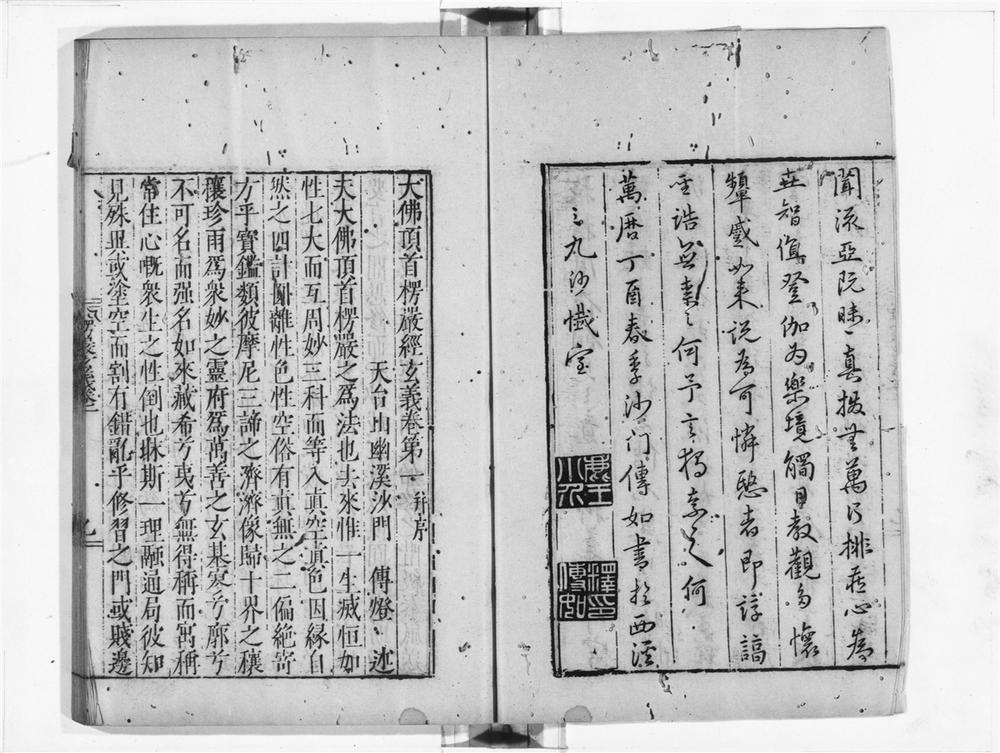 聞流亞阮
真撥
萬行排
心為
智
登伽為樂境觸目教觀多懷
顰蹙如來說為可憐愍者即諄諄
誥
何予言
之何
萬曆丁酉春季沙門傳如書於西溪
之九沙懺室
釋印傳如
大佛頂首楞嚴經玄義卷第一 并序
天台山幽溪沙門 傳燈 述
夫大佛頂首楞嚴之為法也去來惟一生滅恒如
性七大而互周妙三科而等入真空真色因緣自
然之四計圓離性色性空俗有真無之二偏絕寄
方乎寶鑑類彼摩尼三諦之濟濟像歸十界之穰
穰珍雨為眾妙之靈府為萬善之玄基寂兮廓兮
不可名而强名如來藏希兮夷兮無得稱而寓稱
常住心嘅眾生之性倒也昧斯一理融通局彼知
見殊異或塗空而割有錯亂乎修習之門或賤邊